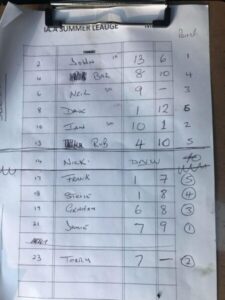 IA.A SUMMER LEAUGE
2 JOHN 13 6 1
4 BAR 8 10 4
6 NEIL 9 - 3
8 DAVE 1 12 6
10 IAN 10 1 2
ROB 4 10 5
14 NICK. DNW
17 FRANK 1 7 5
18 STEVE 1 8 4
19 GRAHAM 6 8 3
21 JAMIE 7 9 1
23 TERRY 7 - 2